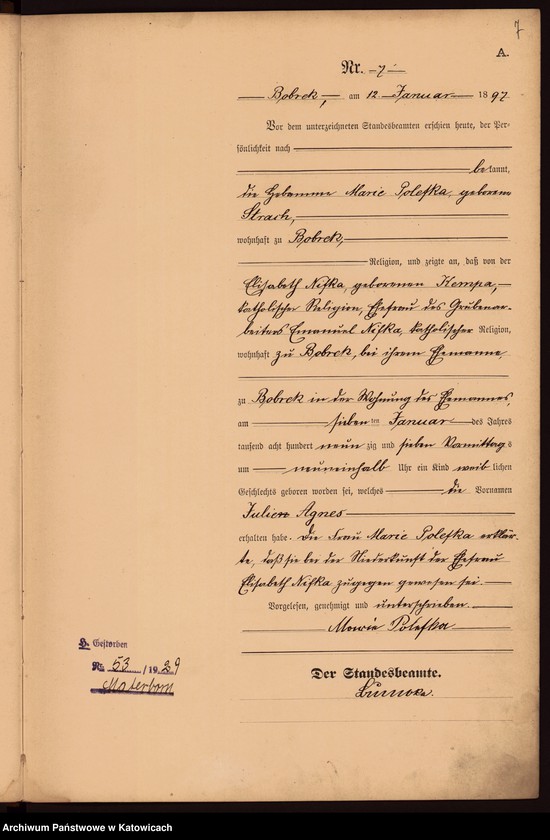 7
A.
Nr. 7
Bobrek, am 12 Januar 1897
Vor dem unterzeichneten Standesbeamten erschien heute, der Per-
sönlichkeit nach
bekannt,
die Hebamme Marie Polefka, geborene
Strach,
wohnhaft zu Bobrek,
Religion, und zeigte an, daß von der
Elisabeth Nifka, geborenen Kempa,
katholischer Religion, Ehefrau des Grubenar-
beiters Emanuel Nifka, katholischer Religion,
wohnhaft zu Bobrek, bei ihrem Ehemanne
zu Bobrek in der Wohnung des Ehemannes,
am sieben ten Januar des Jahres
tausend acht hundert neun zig und sieben Vormittags
um neuneinhalb Uhr ein Kind weiblichen
Geschlechts geboren worden sei, welches die Vornamen
Agnes
erhalten habe. Die Frau Marie Polefka erklär-
te, daß sie bei der Niederkunft der Ehefrau
Elisabeth Nifka zugegen gewesen sei.
Vorgelesen, genehmigt und unterschrieben.
Marie Polefka
Der Standesbeamte.
Gestorben
Nr. 53 / 1929
Archiwum Państwowe w Katowicach